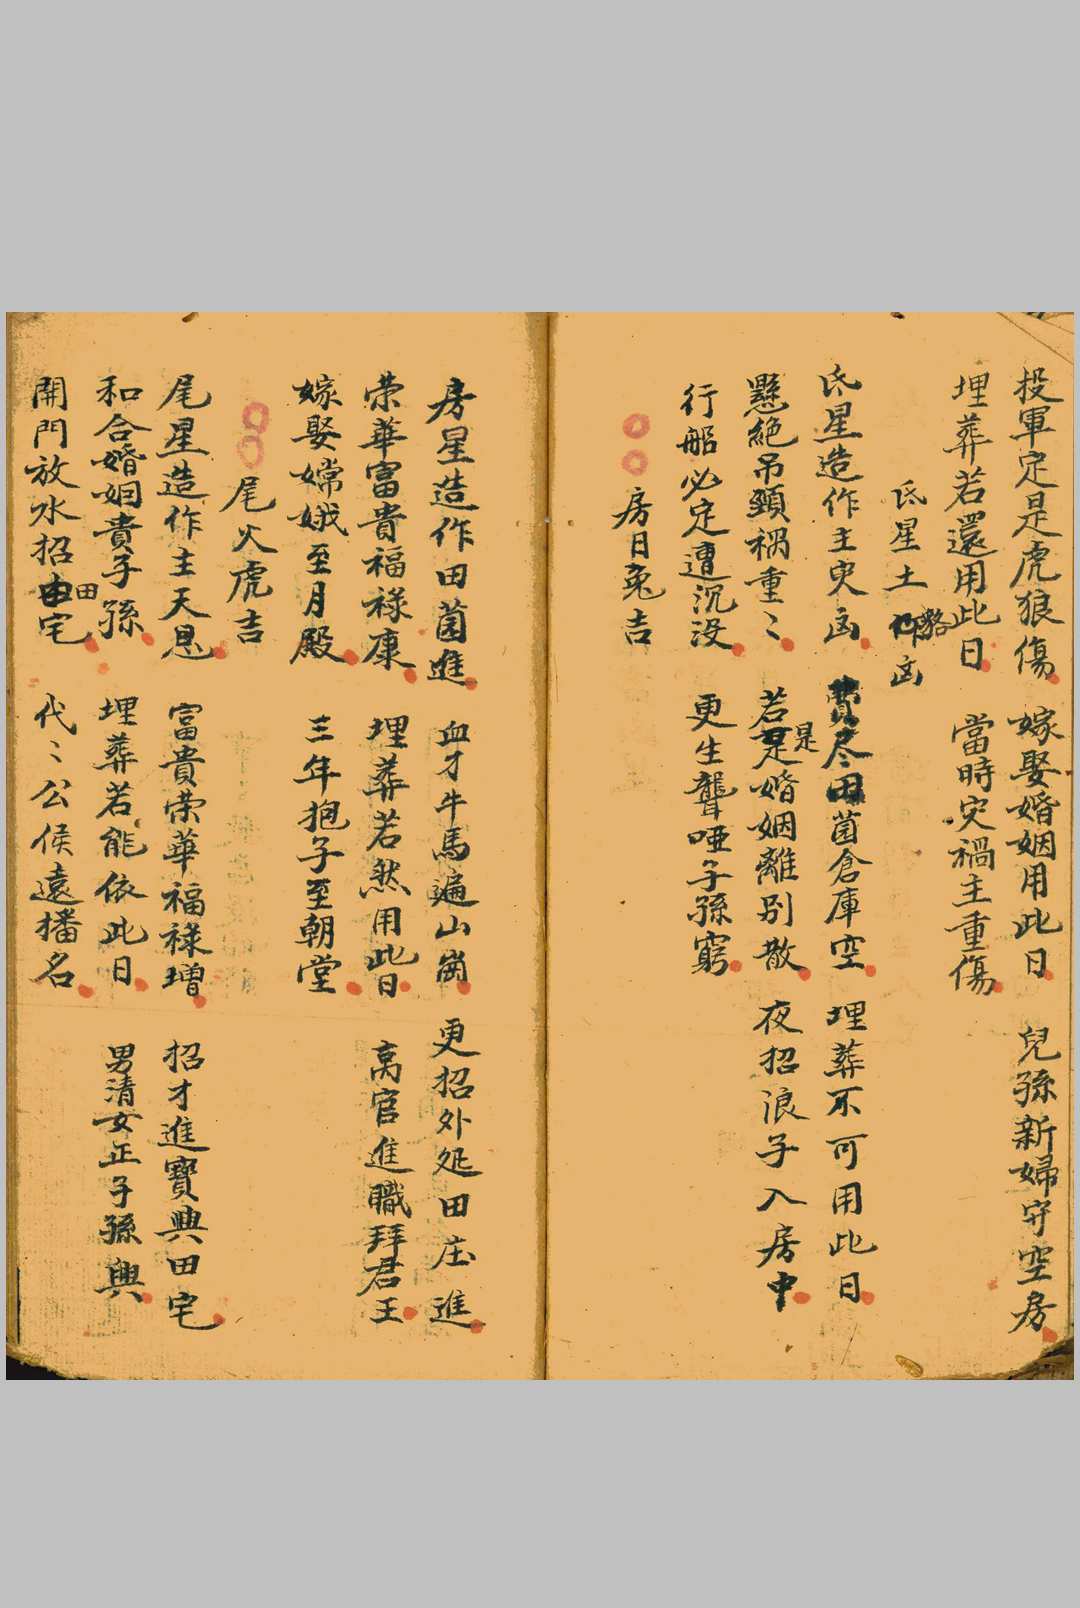 投軍定是虎狼傷 嫁娶婚姻用此日 兒孫新婦守空房
埋葬若還用此日 當時灾禍主重傷
氐星土貉凶
氐星造作主灾凶 費尽田園倉庫空 埋葬不可用此日
懸絶吊頸禍重〻 若是婚姻離别散 夜招浪子入房中
行船必定遭沉没 更生聾啞子孫窮
房日兔吉
房星造作田園進 血才牛馬遍山崗 更招外処田庄進
荣華富貴福禄康 埋葬若然用此日 高官進職拜君王
嫁娶嫦娥至月殿 三年抱子至朝堂
尾火虎吉
尾星造作主天恩 富貴荣華福禄増 招才進寶興田宅
和合婚姻貴子孫 埋葬若能依此日 男清女正子孫興
開門放水招田宅 代〻公侯遠播名